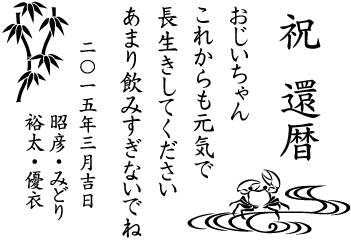 祝 還暦
おじいちゃん
これからも元気で
長生きしてください
あまり飲みすぎないでね
二〇一五年三月吉日
昭彦・みどり
裕太・優衣